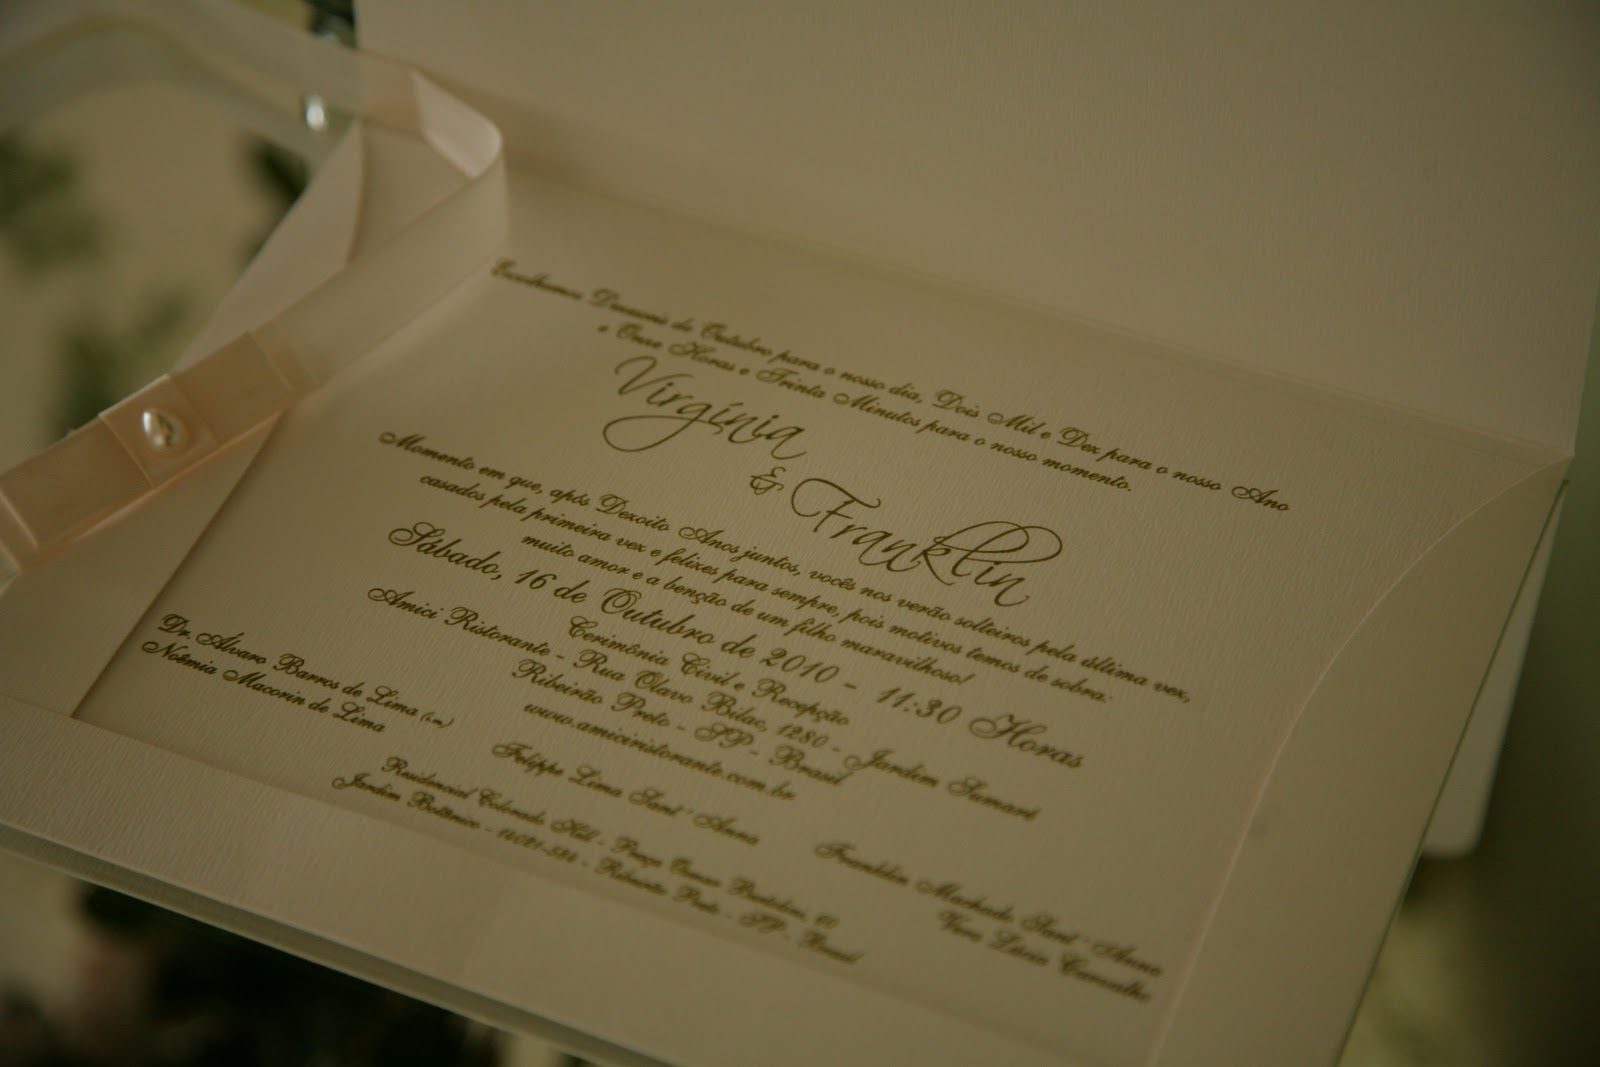 Escolhemos Dezesseis de Outubro para o nosso dia, Dois Mil e Dez para o nosso Ano
e Onze Horas e Trinta Minutos para o nosso momento.
Virgínia
& Franklin
Momento em que, após Dezoito Anos juntos, vocês nos verão solteiros pela última vez,
casados pela primeira vez e felizes para sempre, pois motivos temos de sobra:
muito amor e a benção de um filho maravilhoso!
Sábado, 16 de Outubro de 2010 - 11:30 Horas
Cerimônia Civil e Recepção
Amici Ristorante - Rua Olavo Bilac, 1280 - Jardim Sumaré
Ribeirão Preto - SP - Brasil
www.amiciristorante.com.br
Dr. Alvaro Barros de Lima (i.m.)
Noêmia Macorin de Lima
Felippe Lima Sant'Anna
Franklin Machado Sant'Anna
Vera Lúcia Carvalho
Residencial Colorado Hill - Praça
Jardim Botânico - Ribeirão Preto - SP - Brasil